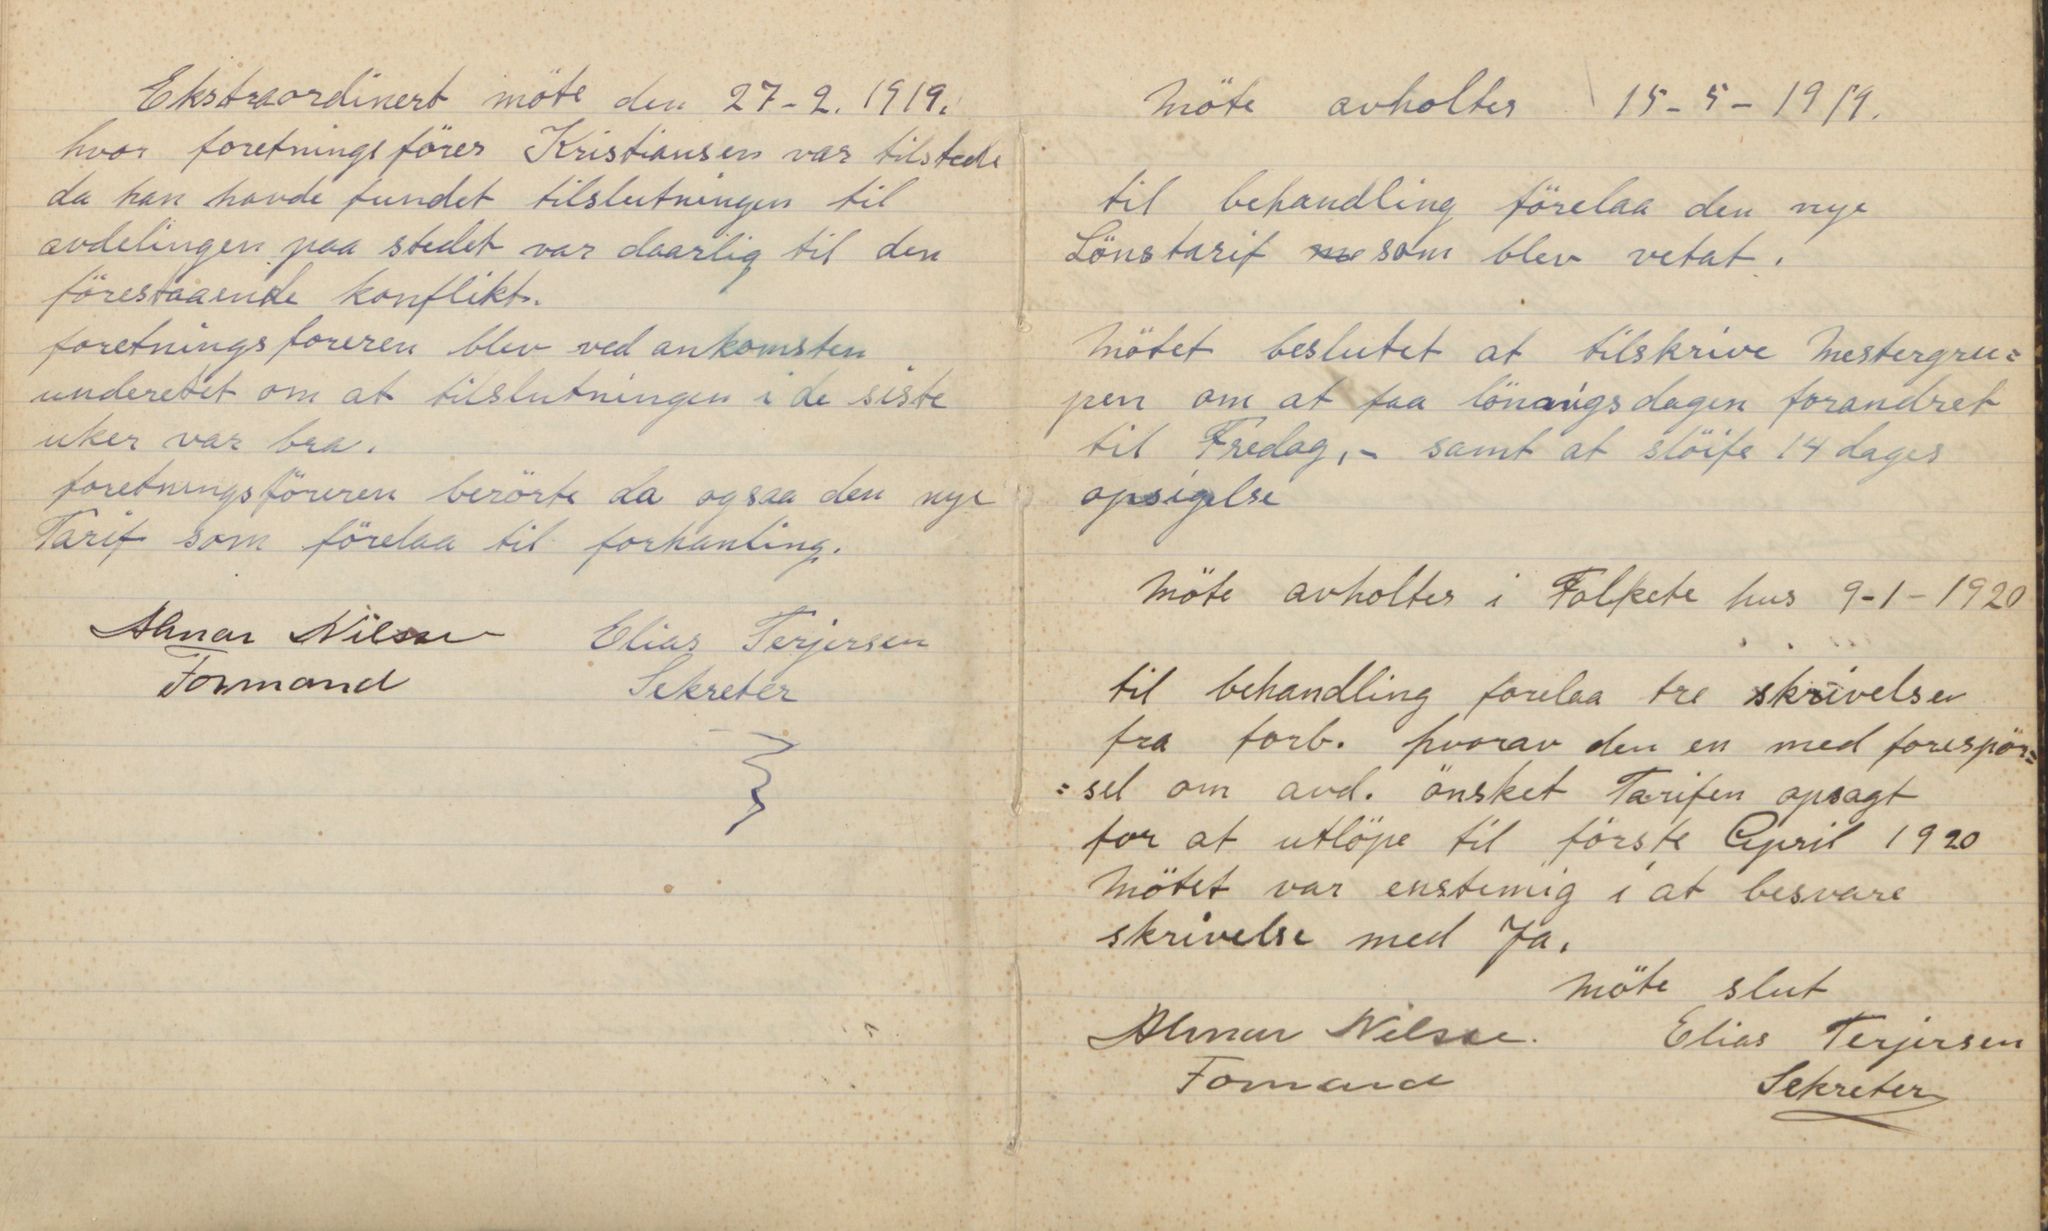 Ekstraordinert möte den 27-2. 1919.
hvor foretningsförer Kristiansen var tilstede
da han havde fundet tilslutningen til
avdelingen paa stedet var daarlig til den
förestaaende konflikt.
foretningsföreren blev ved ankomsten
underetet om at tilslutningen i de siste
uker var bra.
foretningsföreren berörte da ogsaa den nye
Tarif som förelaa til forhanling.
Almar Nilsen Elias Terjersen
Formand Sekreter
Möte avholtes 15-5-1919.
til behandling förelaa den nye
Lönstarif som blev vetat.
Mötet beslutet at tilskrive Mestergru=
pen om at faa lönnigsdagen forandret
til Fredag,- samt at slöife 14 dages
opsigelse
Möte avholtes i Folkete hus 9-1-1920
til behandling forelaa tre skrivelser
fra forb. hvorav den en med forespör=
=sel om avd. önsket Tarifen opsagt
for at utlöpe til förste April 1920
Mötet var enstemig i at besvare
skrivelse med Ja.
Möte slut
Almar Nilsen. Elias Terjersen
Formand Sekreter